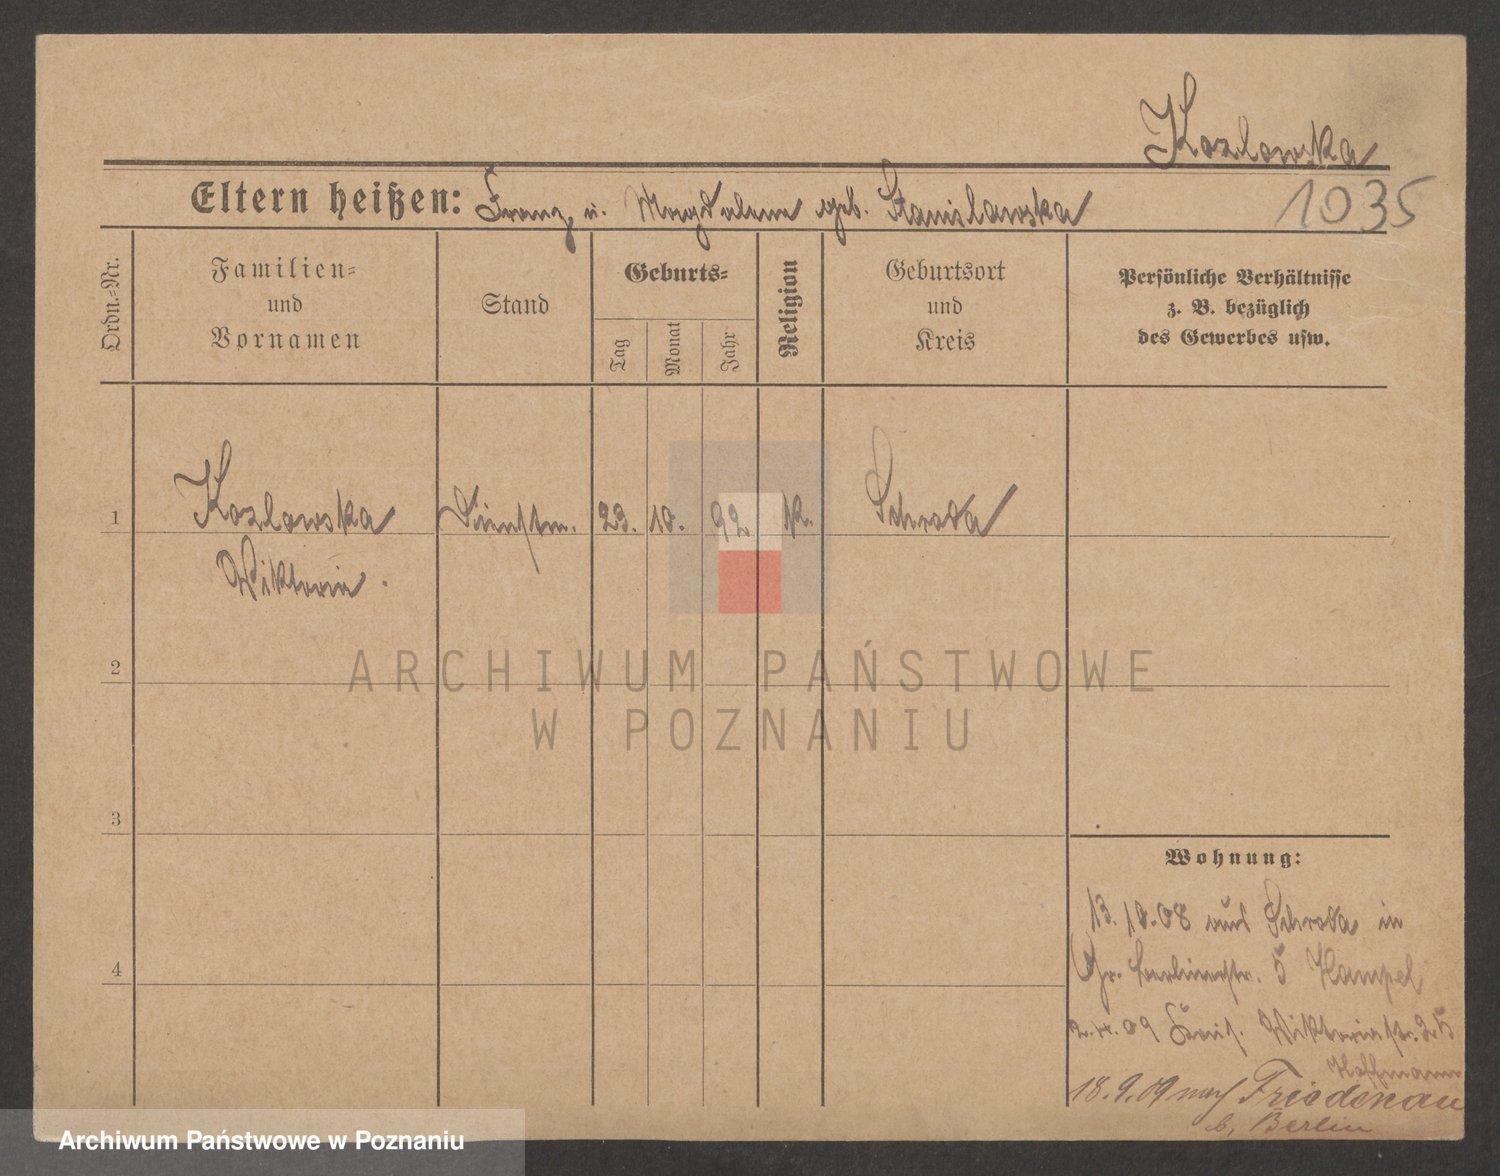 Kozlowska
Eltern heißen: Franz u. Magdalena geb. Stanislawska
1035
Ordn.=Nr.
Familien=
und
Vornamen
Stand
Geburts=
Tag
Monat
Jahr
Religion
Geburtsort
und
Kreis
Persönliche Verhältnisse
z. B. bezüglich
des Gewerbes usw.
1
Kozlowska
Wiktoria.
Dienstm.
23.
10.
92
K.
Schroda
2
ARCHIWUM PAŃSTWOWE
W POZNANIU
3
Wohnung:
13.10.08 aus Schroda in
Gr. Berlinerstr. 5 Hampel
4
2.4.09 Wiktoriastr. 25
Hoffmann
18.9.09 nach Friedenau
b. Berlin
Archiwum Państwowe w Poznaniu